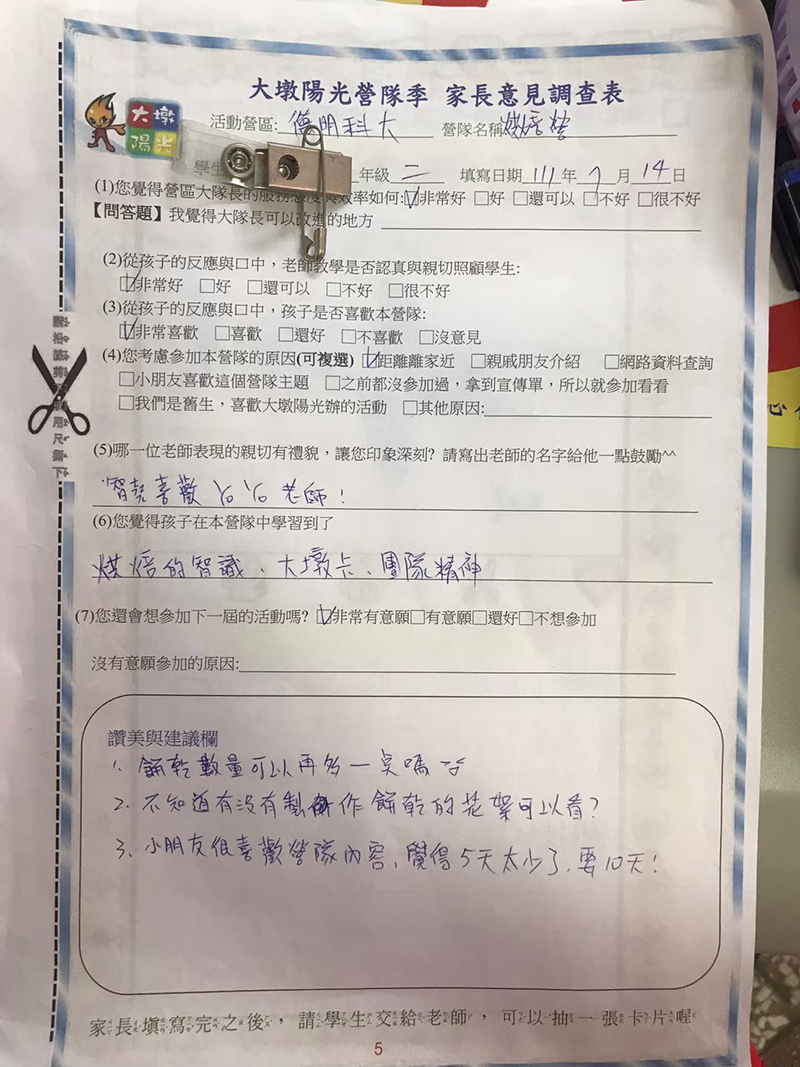 大墩陽光營隊季 家長意見調查表
大墩
陽光
活動營區: 德明科大 營隊名稱 烘焙營
學生 年級 二 填寫日期 111 年 7 月 14 日
(1)您覺得營區大隊長的服務態度 效率如何:☑非常好 □好 □還可以 □不好 □很不好
【問答題】我覺得大隊長可以改進的地方
(2)從孩子的反應與口中，老師教學是否認真與親切照顧學生:
☑非常好 □好 □還可以 □不好 □很不好
(3)從孩子的反應與口中，孩子是否喜歡本營隊:
☑非常喜歡 □喜歡 □還好 □不喜歡 □沒意見
(4)您考慮參加本營隊的原因(可複選) ☑距離離家近 □親戚朋友介紹 □網路資料查詢
□小朋友喜歡這個營隊主題 □之前都沒參加過，拿到宣傳單，所以就參加看看
□我們是舊生，喜歡大墩陽光辦的活動 □其他原因:
(5)哪一位老師表現的親切有禮貌，讓您印象深刻? 請寫出老師的名字給他一點鼓勵^^
智堯喜歡 YoYo 老師!
(6)您覺得孩子在本營隊中學習到了
烘焙的智識、大墩卡、團隊精神
(7)您還會想參加下一屆的活動嗎? ☑非常有意願□有意願□還好□不想參加
沒有意願參加的原因:
讚美與建議欄
1. 餅乾數量可以再多一點嗎
2. 不知道有沒有製作餅乾的花絮可以看?
3. 小朋友很喜歡營隊內容,覺得5天太少了,要10天!
家長填寫完之後，請學生交給老師，可以抽一張卡片喔
5